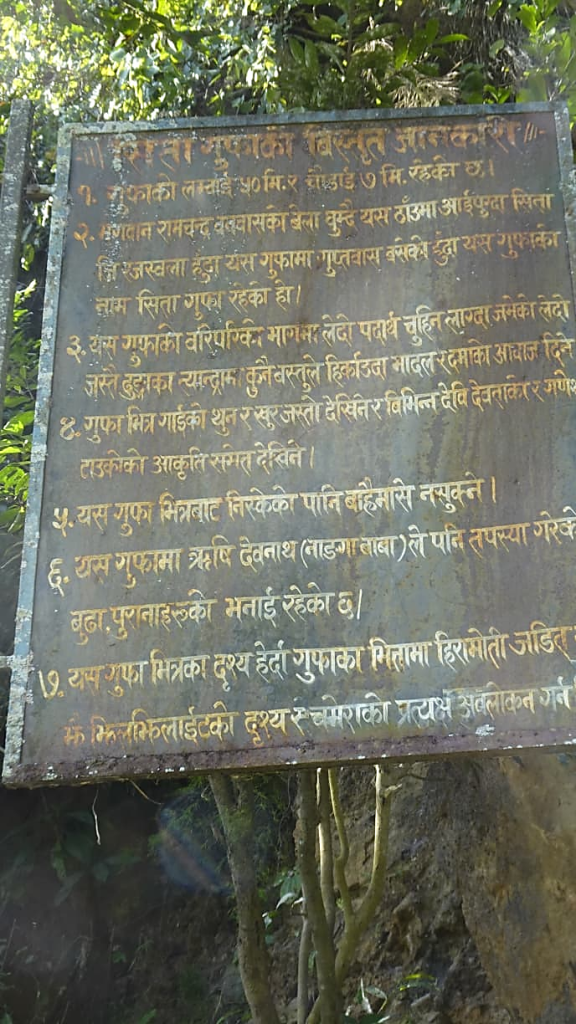 सिता गुफाको विस्मृत जानकारी
१. गुफाको लम्बाई ५० मि. र चौडाई ७ मि. रहेको छ।
२. भगवान रामचन्द्र वनवासको बेला घुम्दै यस ठाँउमा आईपुग्दा सिता
जि रजस्वला हुँदा यस गुफामा गुप्तवास बसेको हुँदा यस गुफाको
नाम सिता गुफा रहेको हो।
३. यस गुफाको वरिपरिको भागमा लेदो पदार्थ चुहिन लाग्दा जमेको लेदो
जस्तै ढुङ्गाका कुनै वस्तुले हिर्काउदा मादल र दमाको आवाज दिने
४. गुफा भित्र गाईको थुन र खुर जस्तो देखिने र विभिन्न देवि देवताको र गणेश
टाउकोको आकृति समेत देखिने।
५. यस गुफा भित्रबाट निस्केको पानि बाह्रैमासे नसुक्ने।
६. यस गुफामा ऋषि देवनाथ (नाङगा बाबा) ले पनि तपस्या गरेको
बुढा.पुरानाहरूको भनाई रहेको छ।
७. यस गुफा भित्रका दृश्य हेर्दा गुफाका भितामा हिरामोती जडित
झै झिलझिलाईटको दृश्य र चमेराको प्रत्यक्ष अवलोकन गर्न